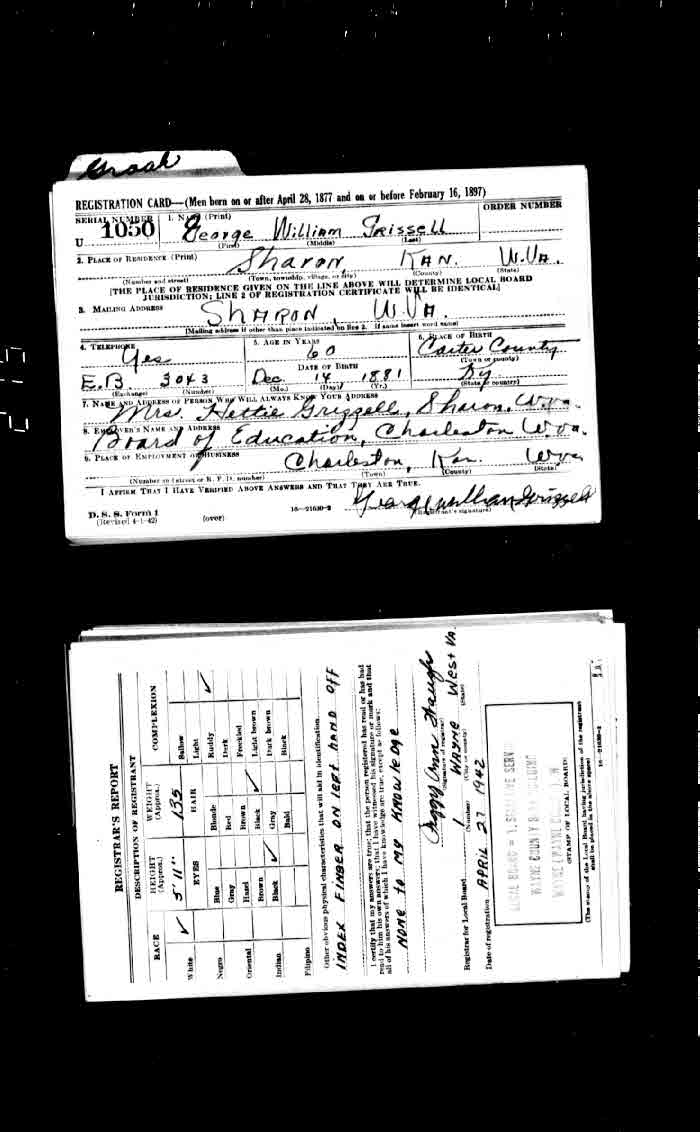 REGISTRATION CARD—(Men born on or after April 28, 1877 and on or before February 16, 1897)
SERIAL NUMBER
1. NAME (Print)
ORDER NUMBER
U 1050
George William Grissell
(First) (Middle) (Last)
2. PLACE OF RESIDENCE (Print)
Sharon KAN. W.VA.
(Number and street) (Town, township, village, or city) (County) (State)
[THE PLACE OF RESIDENCE GIVEN ON THE LINE ABOVE WILL DETERMINE LOCAL BOARD
JURISDICTION; LINE 2 OF REGISTRATION CERTIFICATE WILL BE IDENTICAL]
3. MAILING ADDRESS
SHARON, W.VA.
[Mailing address if other than place indicated on line 2. If same insert word same]
4. TELEPHONE
5. AGE IN YEARS
6. PLACE OF BIRTH
Yes
60
Carter County
(Town or county)
DATE OF BIRTH
E.B. 3043
Dec. 14 1881
Ky
(Exchange) (Number)
(Mo.) (Day) (Yr.)
(State or country)
7. NAME AND ADDRESS OF PERSON WHO WILL ALWAYS KNOW YOUR ADDRESS
Mrs. Hettie Grizzell, Sharon, W.Va.
8. EMPLOYER'S NAME AND ADDRESS
Board of Education, Charleston W.Va.
9. PLACE OF EMPLOYMENT OR BUSINESS
Charleston, Kan. W.Va
(Number and street or R. F. D. number) (Town) (County) (State)
I AFFIRM THAT I HAVE VERIFIED ABOVE ANSWERS AND THAT THEY ARE TRUE.
George William Grizzell
D. S. S. Form 1
(Revised 4-1-42)
(over)
16—21630-2
(Registrant's signature)
REGISTRAR'S REPORT
DESCRIPTION OF REGISTRANT
RACE
HEIGHT
(Approx.)
WEIGHT
(Approx.)
COMPLEXION
5' 11"
135
White ✓
EYES
HAIR
Sallow
Light
Negro
Blue
Blonde
Ruddy ✓
Gray
Red
Dark
Oriental
Hazel
Brown
Freckled
Brown
Black ✓
Light brown
Indian
Black ✓
Gray
Dark brown
Bald
Black
Filipino
Other obvious physical characteristics that will aid in identification
INDEX FINGER ON LEFT HAND OFF
I certify that my answers are true; that the person registered has read or has had
read to him his own answers; that I have witnessed his signature or mark and that
all of his answers of which I have knowledge are true, except as follows:
NONE to MY KNOWLEDGE
Ann
(Signature of registrar)
Registrar for Local Board 1 WAYNE West VA.
(Number) (City or county) (State)
Date of registration APRIL 27 1942
LOCAL BOARD
WAYNE COUNTY
(STAMP OF LOCAL BOARD)
(The stamp of the Local Board having jurisdiction of the registrant
shall be placed in the above space)
16—21630-2